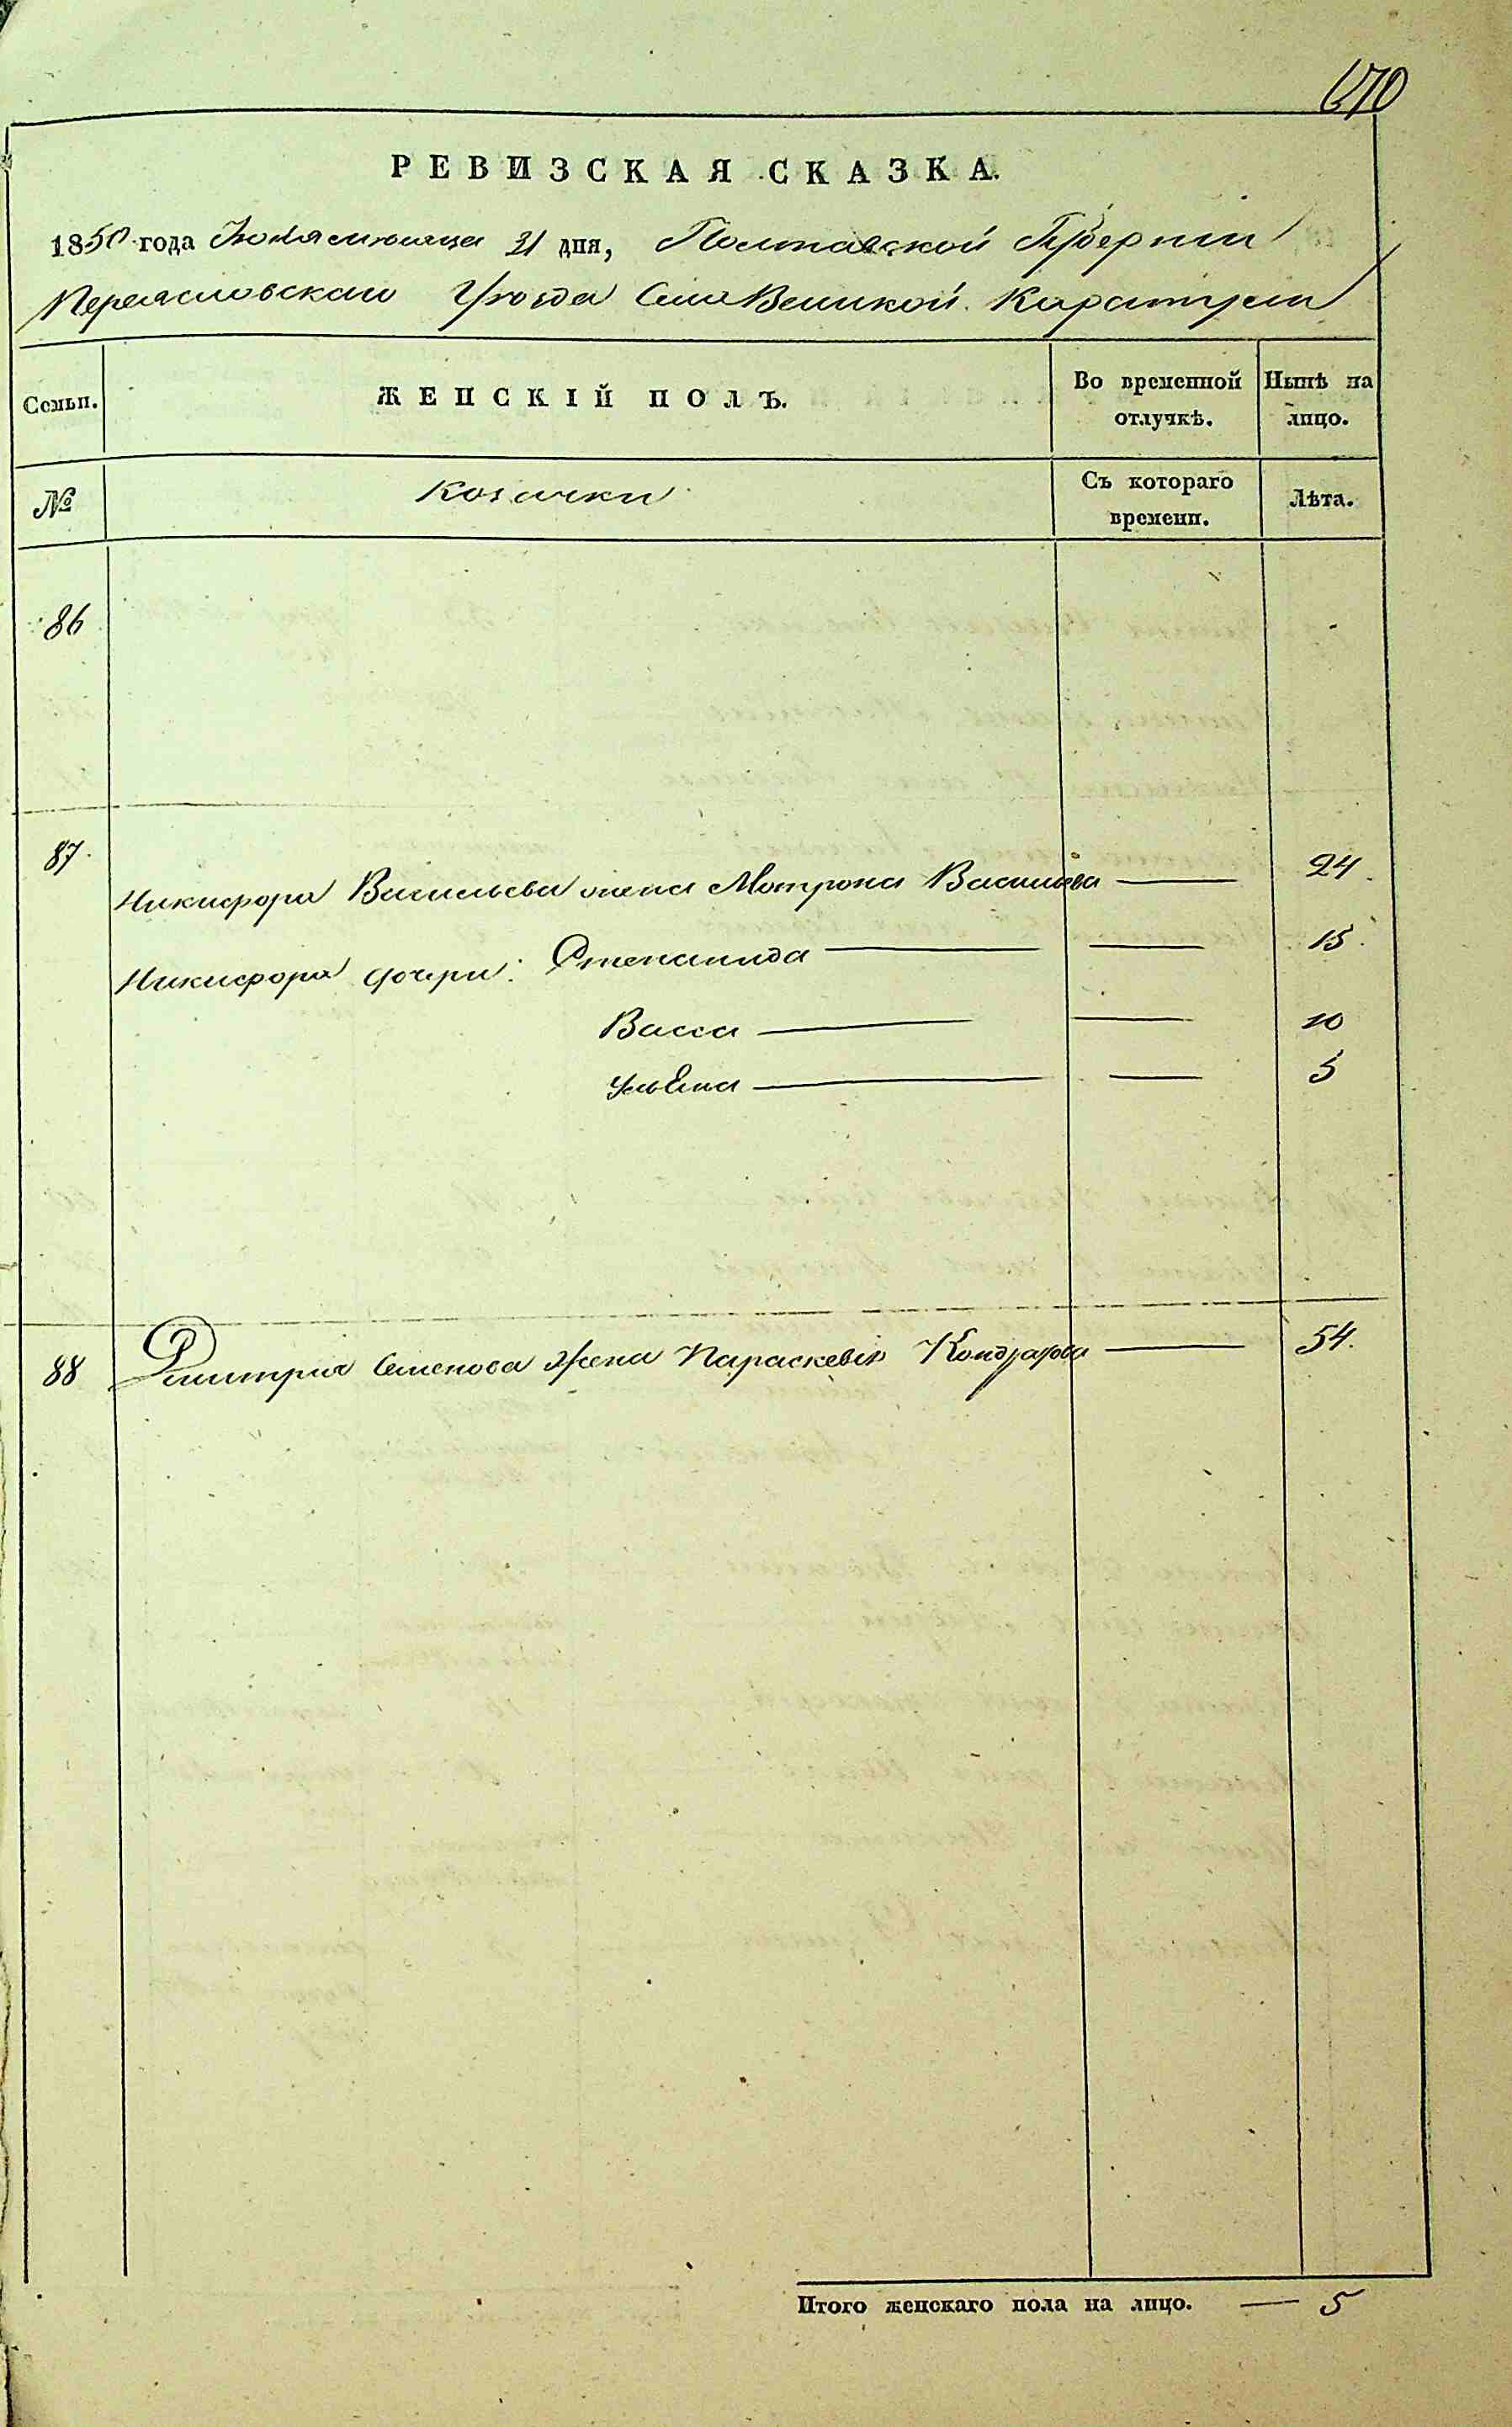 670
РЕВИЗСКАЯ СКАЗКА.
1850 года Іюля месяца 31 дня, Полтавской Губерніи
Переясловскаго Уѣзда Села Великой Каратули
Семьи.
ЖЕНСКІЙ ПОЛЪ.
Во временной отлучкѣ.
Нынѣ на лицо.
№
Козачки
Съ котораго времени.
Лѣта.
86
87.
Никифора Васильева жена Мотрона Васильева — 24.
Никифора дочери: Степанида — — 15.
Васса — — 10
Ульяна — — 5
88 Дмитрія Семенова жена Параскевія Кондратова — 54.
Итого женскаго пола на лицо. — 5